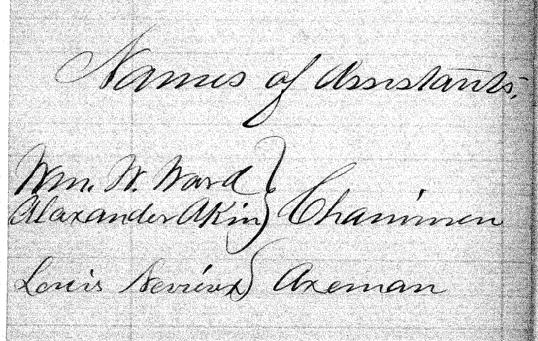 Names of Assistants.
Wm. W. Ward
Alaxander Akin } Chainmen
Louis } Axeman